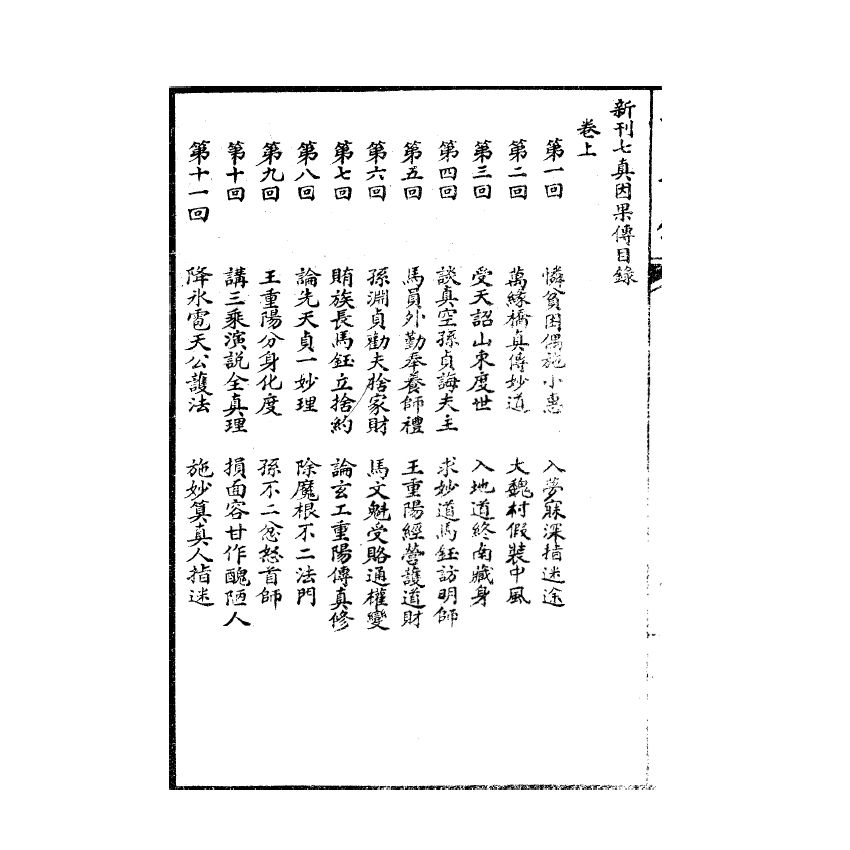 新刊七真因果傳目錄
卷上
第一回 憐貧困偶施小惠 入夢寐深指迷途
第二回 萬緣橋真傳妙道 大魏村假裝中風
第三回 受天詔山東度世 入地道終南藏身
第四回 談真空孫貞誨夫主 求妙道馬鈺訪明師
第五回 馬員外勤奉養師禮 王重陽經營護道財
第六回 孫淵貞勸夫捨家財 馬文魁受賂通權變
第七回 賄族長馬鈺立捨約 論玄工重陽傳真修
第八回 論先天貞一妙理 除魔根不二法門
第九回 王重陽分身化度 孫不二忿怒首師
第十回 講三乘演說全真理 損面容甘作醜陋人
第十一回 降氷雹天公護法 施妙算真人指迷